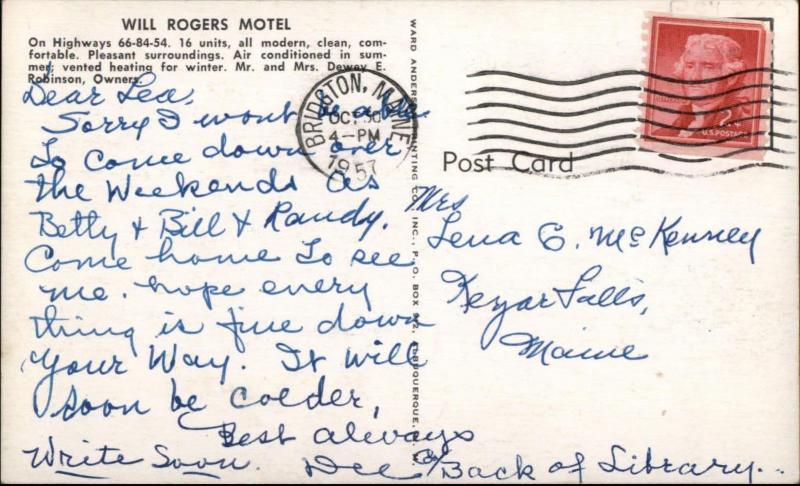 WILL ROGERS MOTEL
On Highways 66-84-54. 16 units, all modern, clean, com-
fortable. Pleasant surroundings. Air conditioned in sum-
mer; vented heating for winter. Mr. and Mrs. Dewey E.
Robinson, Owners.
Dear Lea,
Sorry I wont be able
To come down over
the Weekends as
Betty & Bill & Randy.
Come home To see
me. hope every
thing is fine down
Your Way. It will
soon be colder,
Best always
Write Soon. Dee
Back of Library...
WARD ANDERSON PRINTING CO., INC., P.O. BOX ALBUQUERQUE,
BRIDGTON, MAINE
OCT 30
4-PM
1957
2¢
U.S. POSTAGE
Post Card
Mrs
Lena E. McKenney
Kezar Falls,
Maine